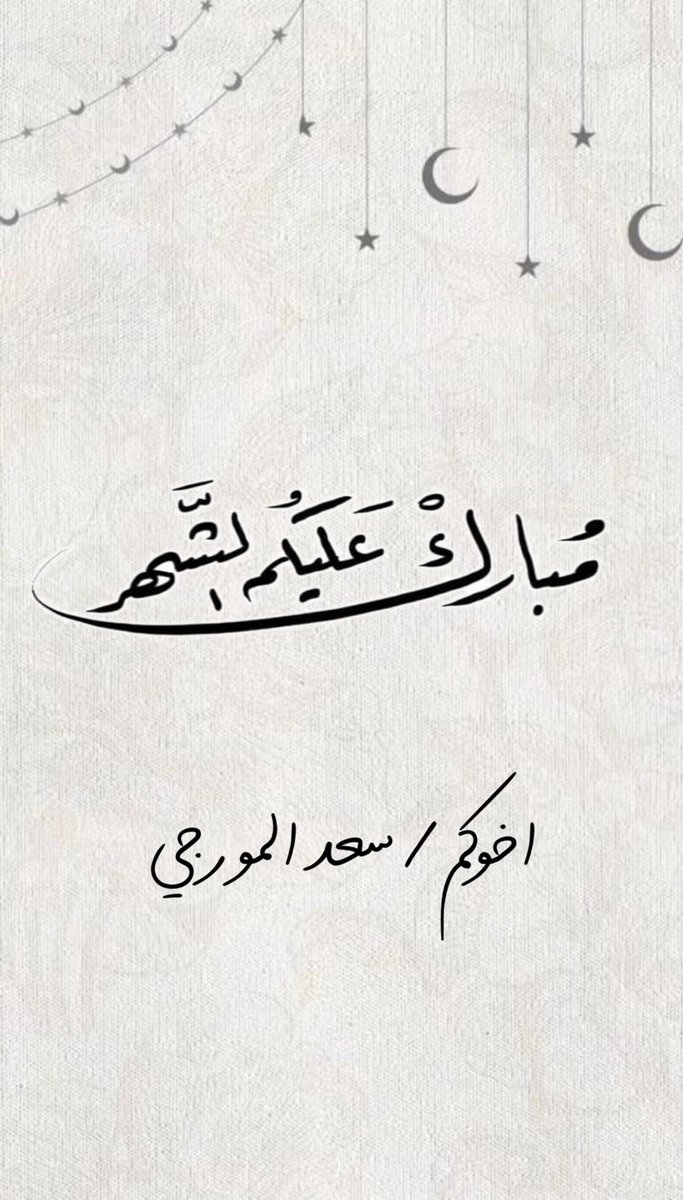 مُباركْ عَليكُم الشَّهر
اخوكم / سعد المورجي